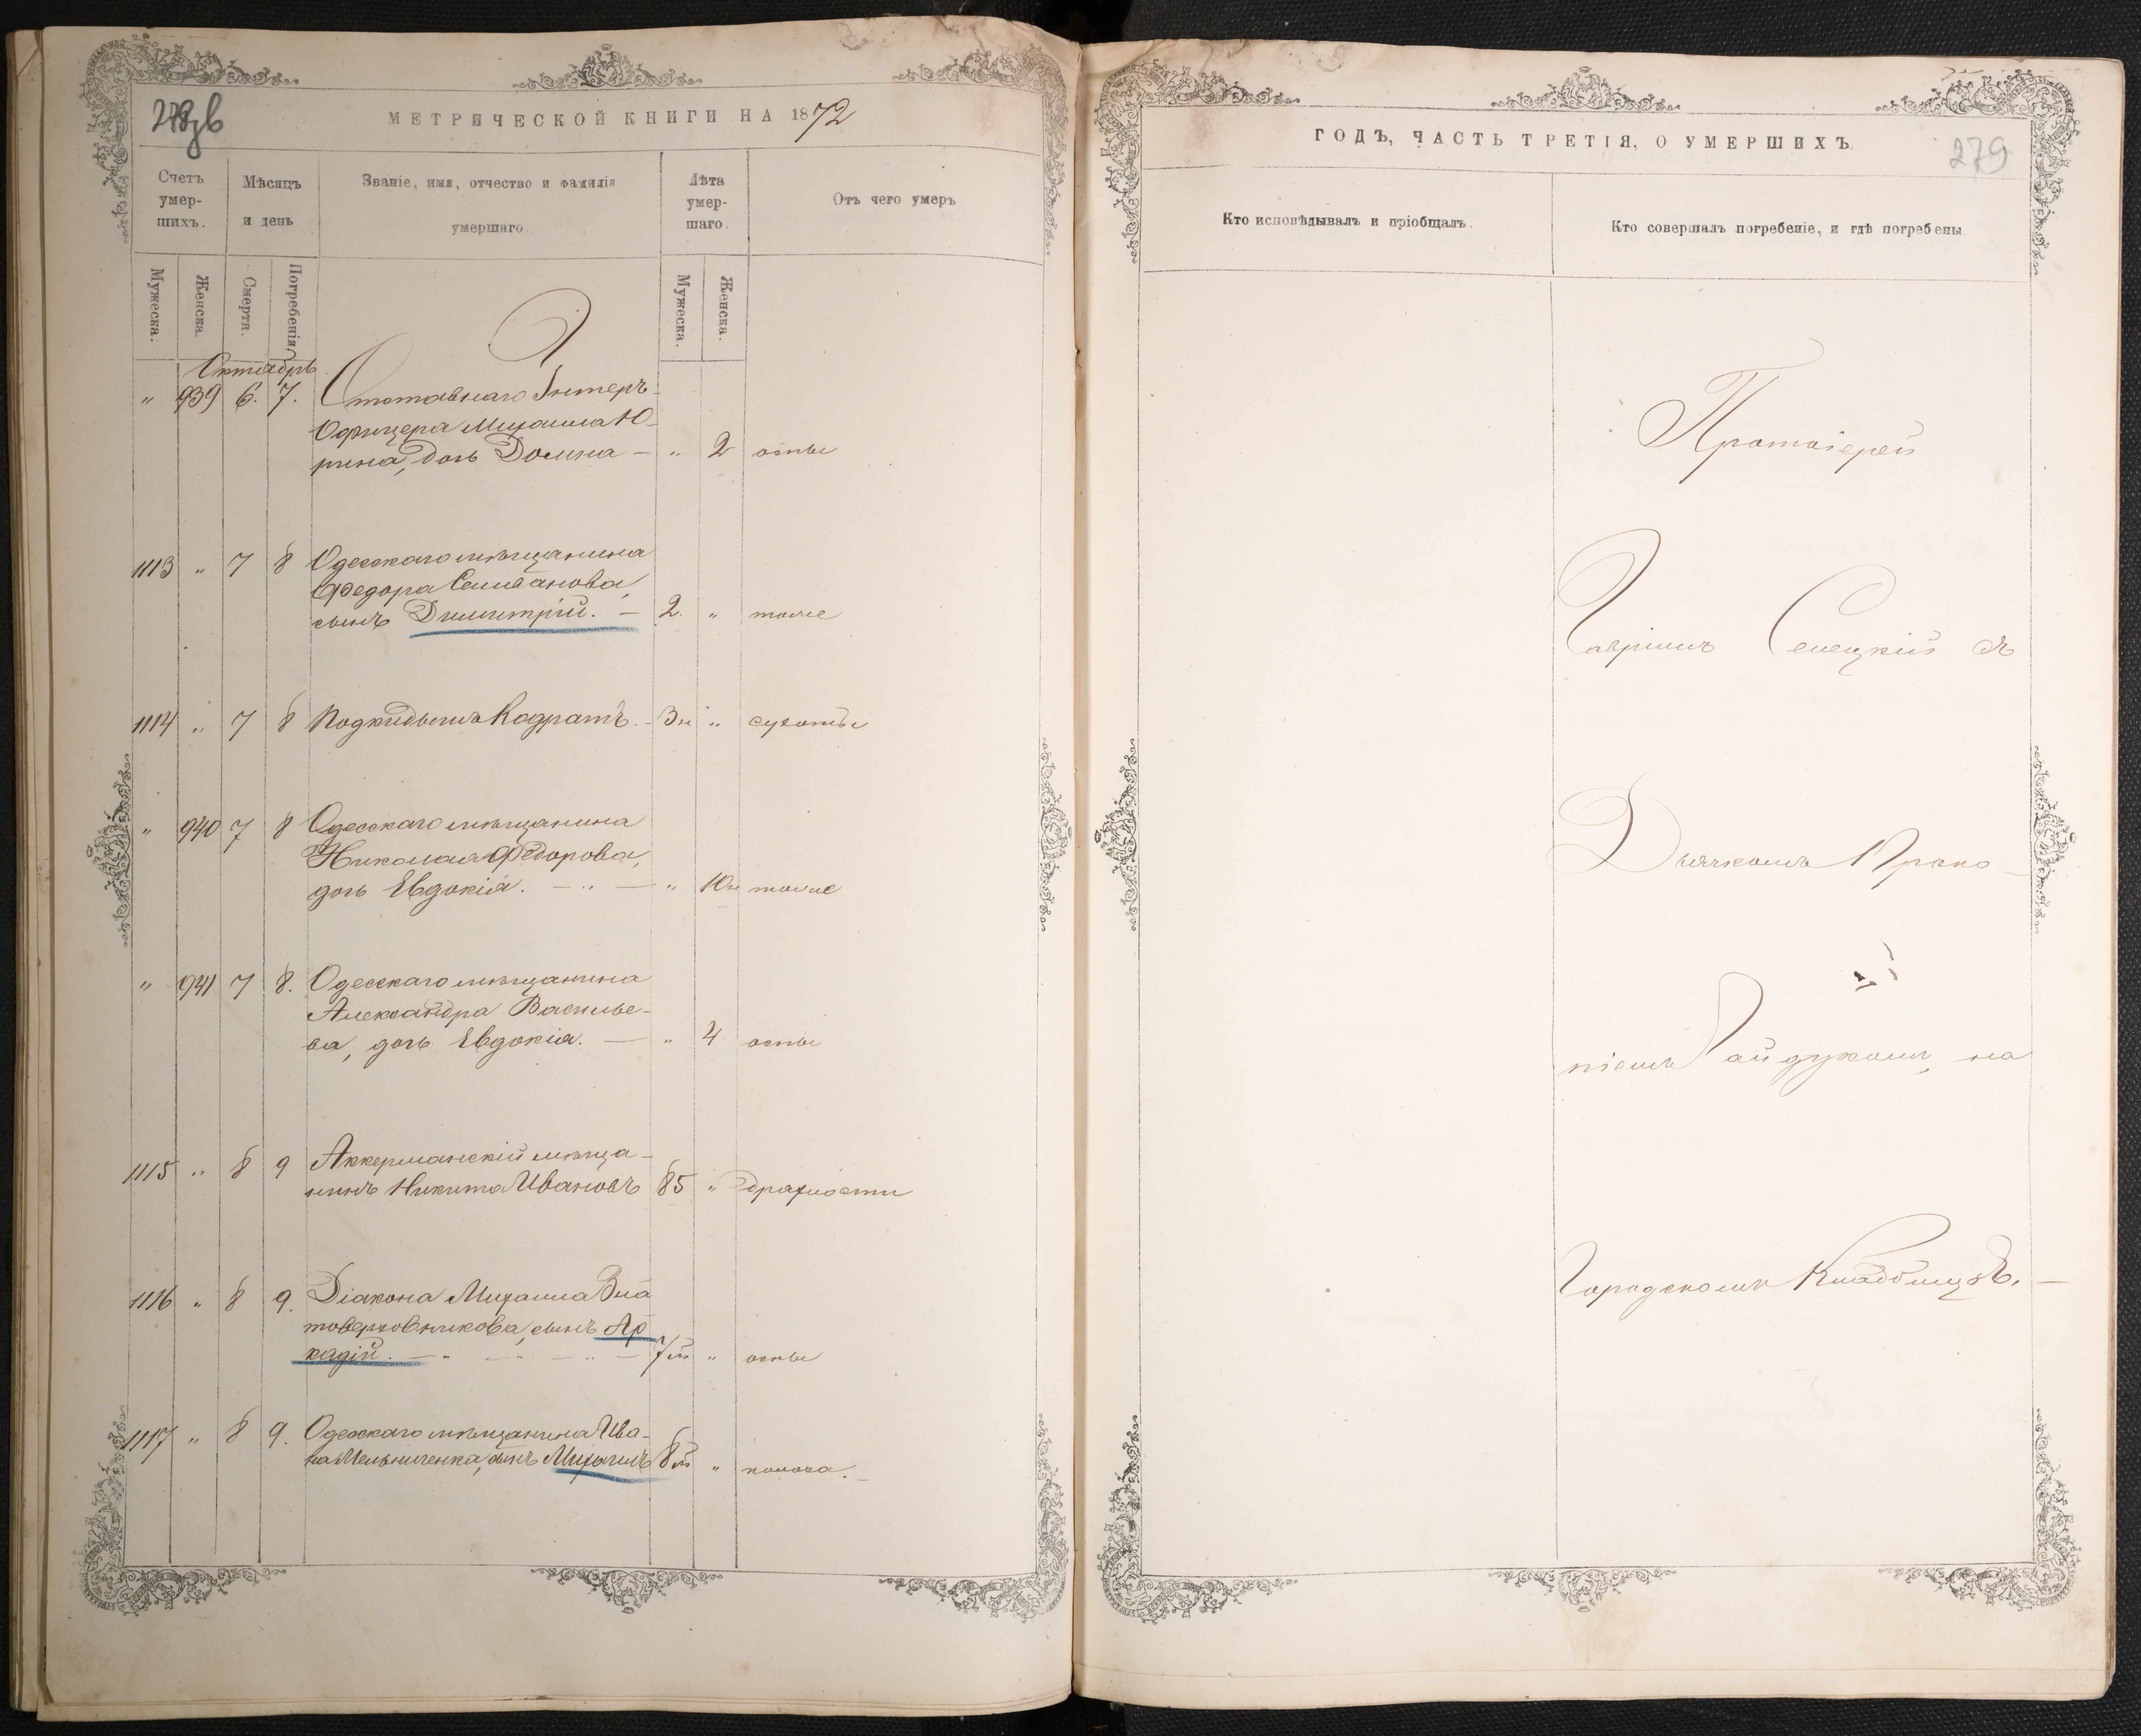 278зв
МЕТРИЧЕСКОЙ КНИГИ НА 1872
Счетъ умер-шихъ.
Мѣсяцъ и день
Званіе, имя, отчество и фамилія умершаго.
Лѣта умер-шаго.
Отъ чего умеръ
Мужеска.
Женска.
Смерти.
Погребенія
Мужеска.
Женска.
Октябрь
" 939 6. 7. Отставнаго Унтеръ-
Офицера Михаила Ю-
рина, дочь Домна — " 2 оспы
1113 " 7 8 Одесскаго мѣщанина
Федора Селиванова,
сынъ Димитрій. — 2. " тоже
1114 " 7 8 Подкидышъ Кадратъ. - 3н " сухоты
" 940 7 8 Одесскаго мѣщанина
Николая Федорова,
дочь Евдокія. — " — " 10м тоже
" 941 7 8. Одесскаго мѣщанина
Александра Василье-
ва, дочь Евдокія. — " 4 оспы
1115 " 8 9 Аккерманскій мѣща-
нинъ Никита Ивановъ 85 " дряхлости
1116 " 8 9. Діакона Михаила Зла
товерховникова, сынъ Ар
кадій. — " — " — " — 7м " оспы
1117 " 8 9. Одесскаго мѣщанина Ива-
на Мельниченка, сынъ Михаилъ 8м " поноса. -
ГОДЪ, ЧАСТЬ ТРЕТІЯ, О УМЕРШИХЪ.
279
Кто исповѣдывалъ и пріобщалъ.
Кто совершалъ погребеніе, и гдѣ погребены
Протоіерей
Гавріилъ Селецкій съ
Дьячкомъ Проко-
піемъ Гайдукомъ, на
Городскомъ Кладбищѣ. —